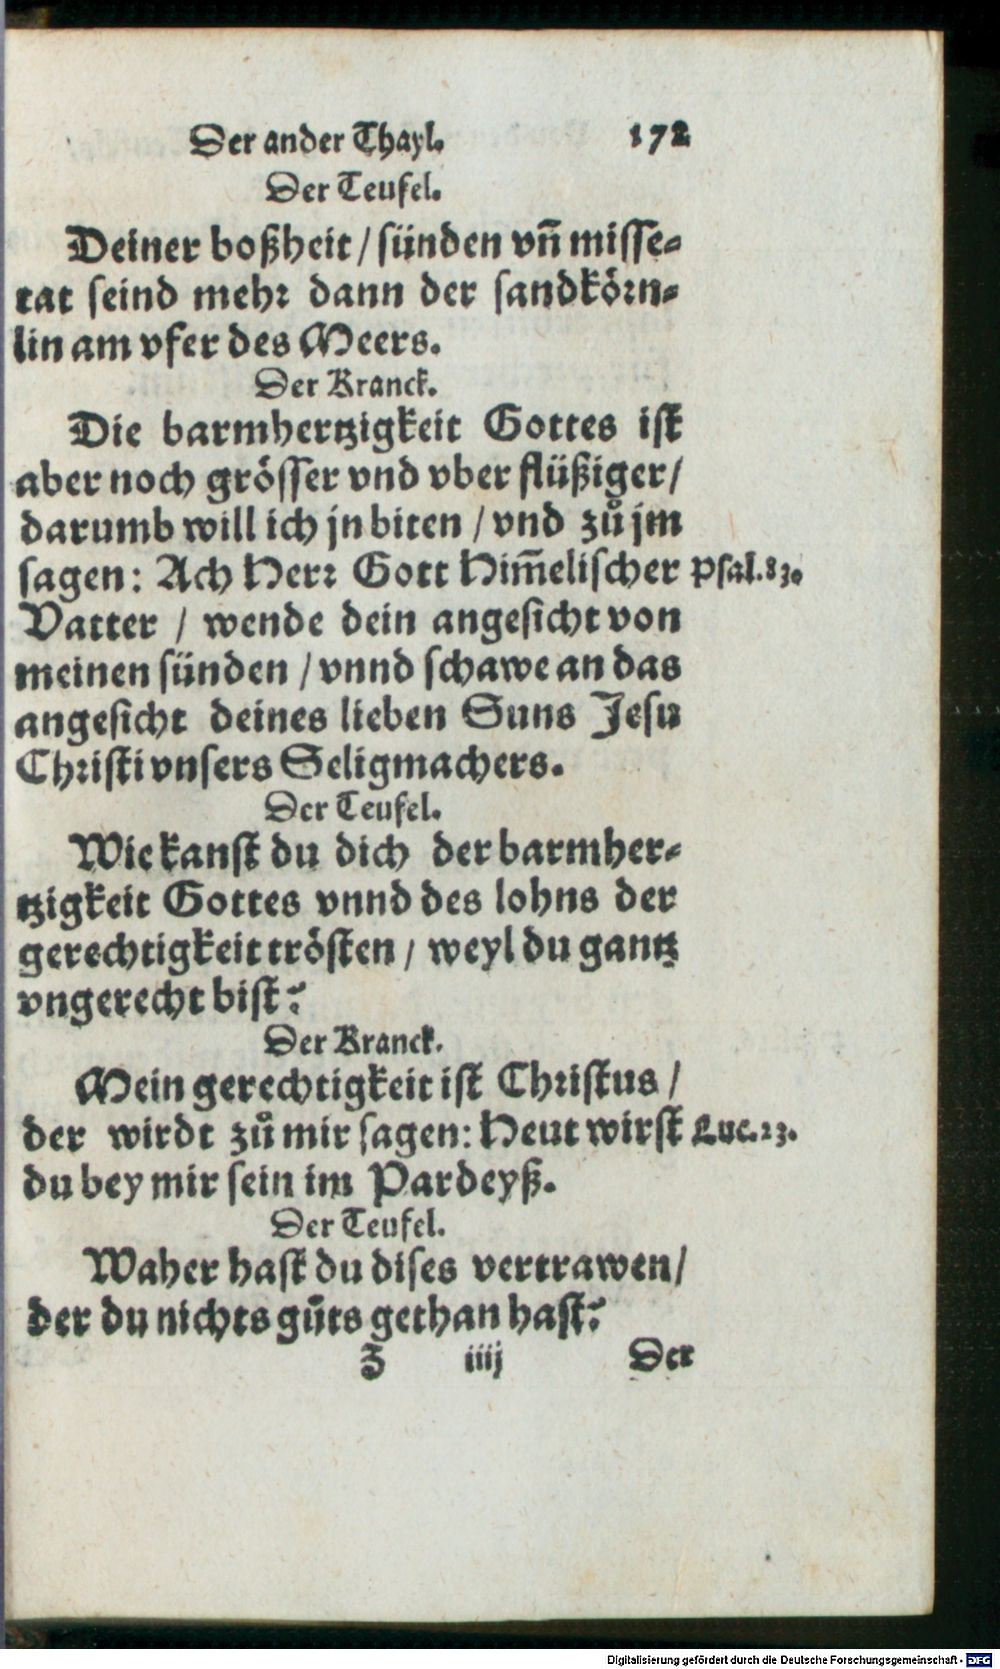 Der ander Thayl. 172
Der Teufel.
Deiner boßheit / sünden vñ misse-
tat seind mehr dann der sandkörn-
lin am vfer des Meers.
Der Kranck.
Die barmhertzigkeit Gottes ist
aber noch grösser vnd vber flüßiger /
darumb will ich jn biten / vnd zů jm
sagen: Ach Herr Gott Him̃elischer Psal. 83.
Vatter / wende dein angesicht von
meinen sünden / vnnd schawe an das
angesicht deines lieben Suns Jesu
Christi vnsers Seligmachers.
Der Teufel.
Wie kanst du dich der barmher-
tzigkeit Gottes vnnd des lohns der
gerechtigkeit trösten / weyl du gantz
vngerecht bist?
Der Kranck.
Mein gerechtigkeit ist Christus /
der wirdt zů mir sagen: Heut wirst Luc. 23.
du bey mir sein im Pardeyß.
Der Teufel.
Waher hast du dises vertrawen /
der du nichts gůts gethan hast?
Z iiij Der
Digitalisierung gefördert durch die Deutsche Forschungsgemeinschaft - DFG